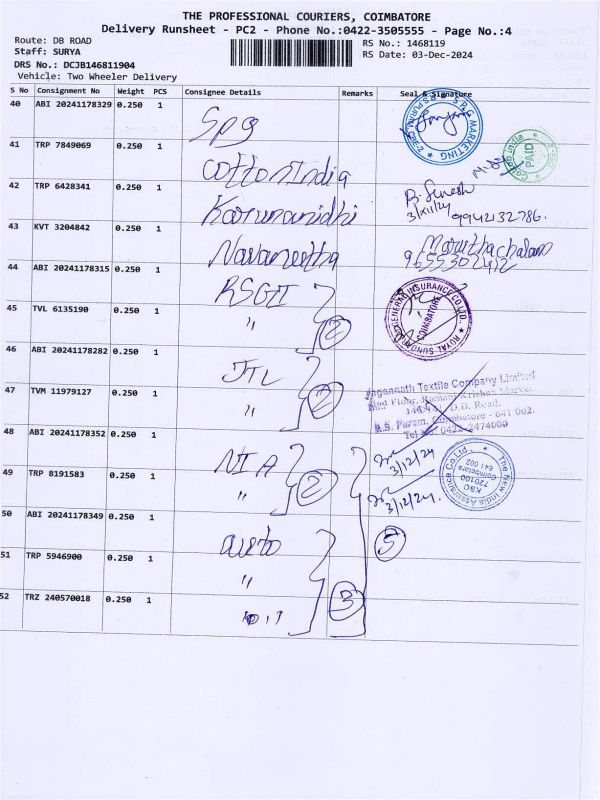 THE PROFESSIONAL COURIERS, COIMBATORE
Delivery Runsheet - PC2 - Phone No.:0422-3505555 - Page No.:4
Route: DB ROAD
RS No.: 1468119
Staff: SURYA
RS Date: 03-Dec-2024
DRS No.: DCJB146811904
Vehicle: Two Wheeler Delivery
S No Consignment No Weight PCS Consignee Details Remarks Seal & Signature
40 ABI 20241178329 0.250 1 Spg
SPG MARKETING
41 TRP 7849069 0.250 1 Cotton India
Cotton India PAID
42 TRP 6428341 0.250 1 Karunanidhi
3/XII/24 9942132786.
43 KVT 3204842 0.250 1 Navaneetha
Maruthachalam
9655302412
44 ABI 20241178315 0.250 1 RSGI
ROYAL SUNDARAM GENERAL INSURANCE CO LTD. COIMBATORE
45 TVL 6135190 0.250 1 " 2
46 ABI 20241178282 0.250 1 JTL
Jagannath Textile Company Limited
47 TVM 11979127 0.250 1 " 2
D.B. Road,
R.S. Puram, Coimbatore - 641 002.
Tel No: 0422-2474000
48 ABI 20241178352 0.250 1 NIA
3/12/24
The New India Assurance Co.Ltd., KBO 720100 Coimbatore 641 002
49 TRP 8191583 0.250 1 " 2
3/12/24.
50 ABI 20241178349 0.250 1 auto
5
51 TRP 5946900 0.250 1 "
52 TRZ 240570018 0.250 1 3